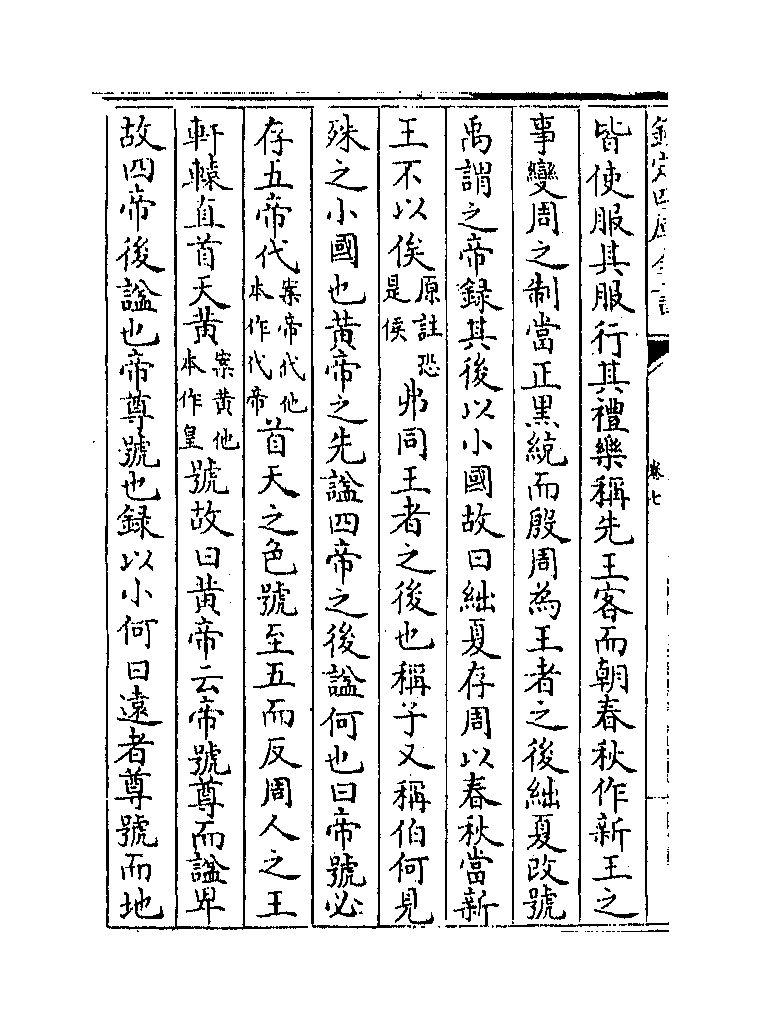 欽定四庫全書
卷七
皆使服其服行其禮樂稱先王客而朝春秋作新王之
事變周之制當正黑統而殷周為王者之後絀夏改號
禹謂之帝録其後以小國故曰絀夏存周以春秋當新
王不以俟原註恐是侯弗同王者之後也稱子又稱伯何見
殊之小國也黄帝之先謚四帝之後謚何也曰帝號必
存五帝代案帝代他本作代帝首天之色號至五而反周人之王
軒轅直首天黄案黄他本作皇號故曰黄帝云帝號尊而謚卑
故四帝後謚也帝尊號也録以小何曰遠者尊號而地